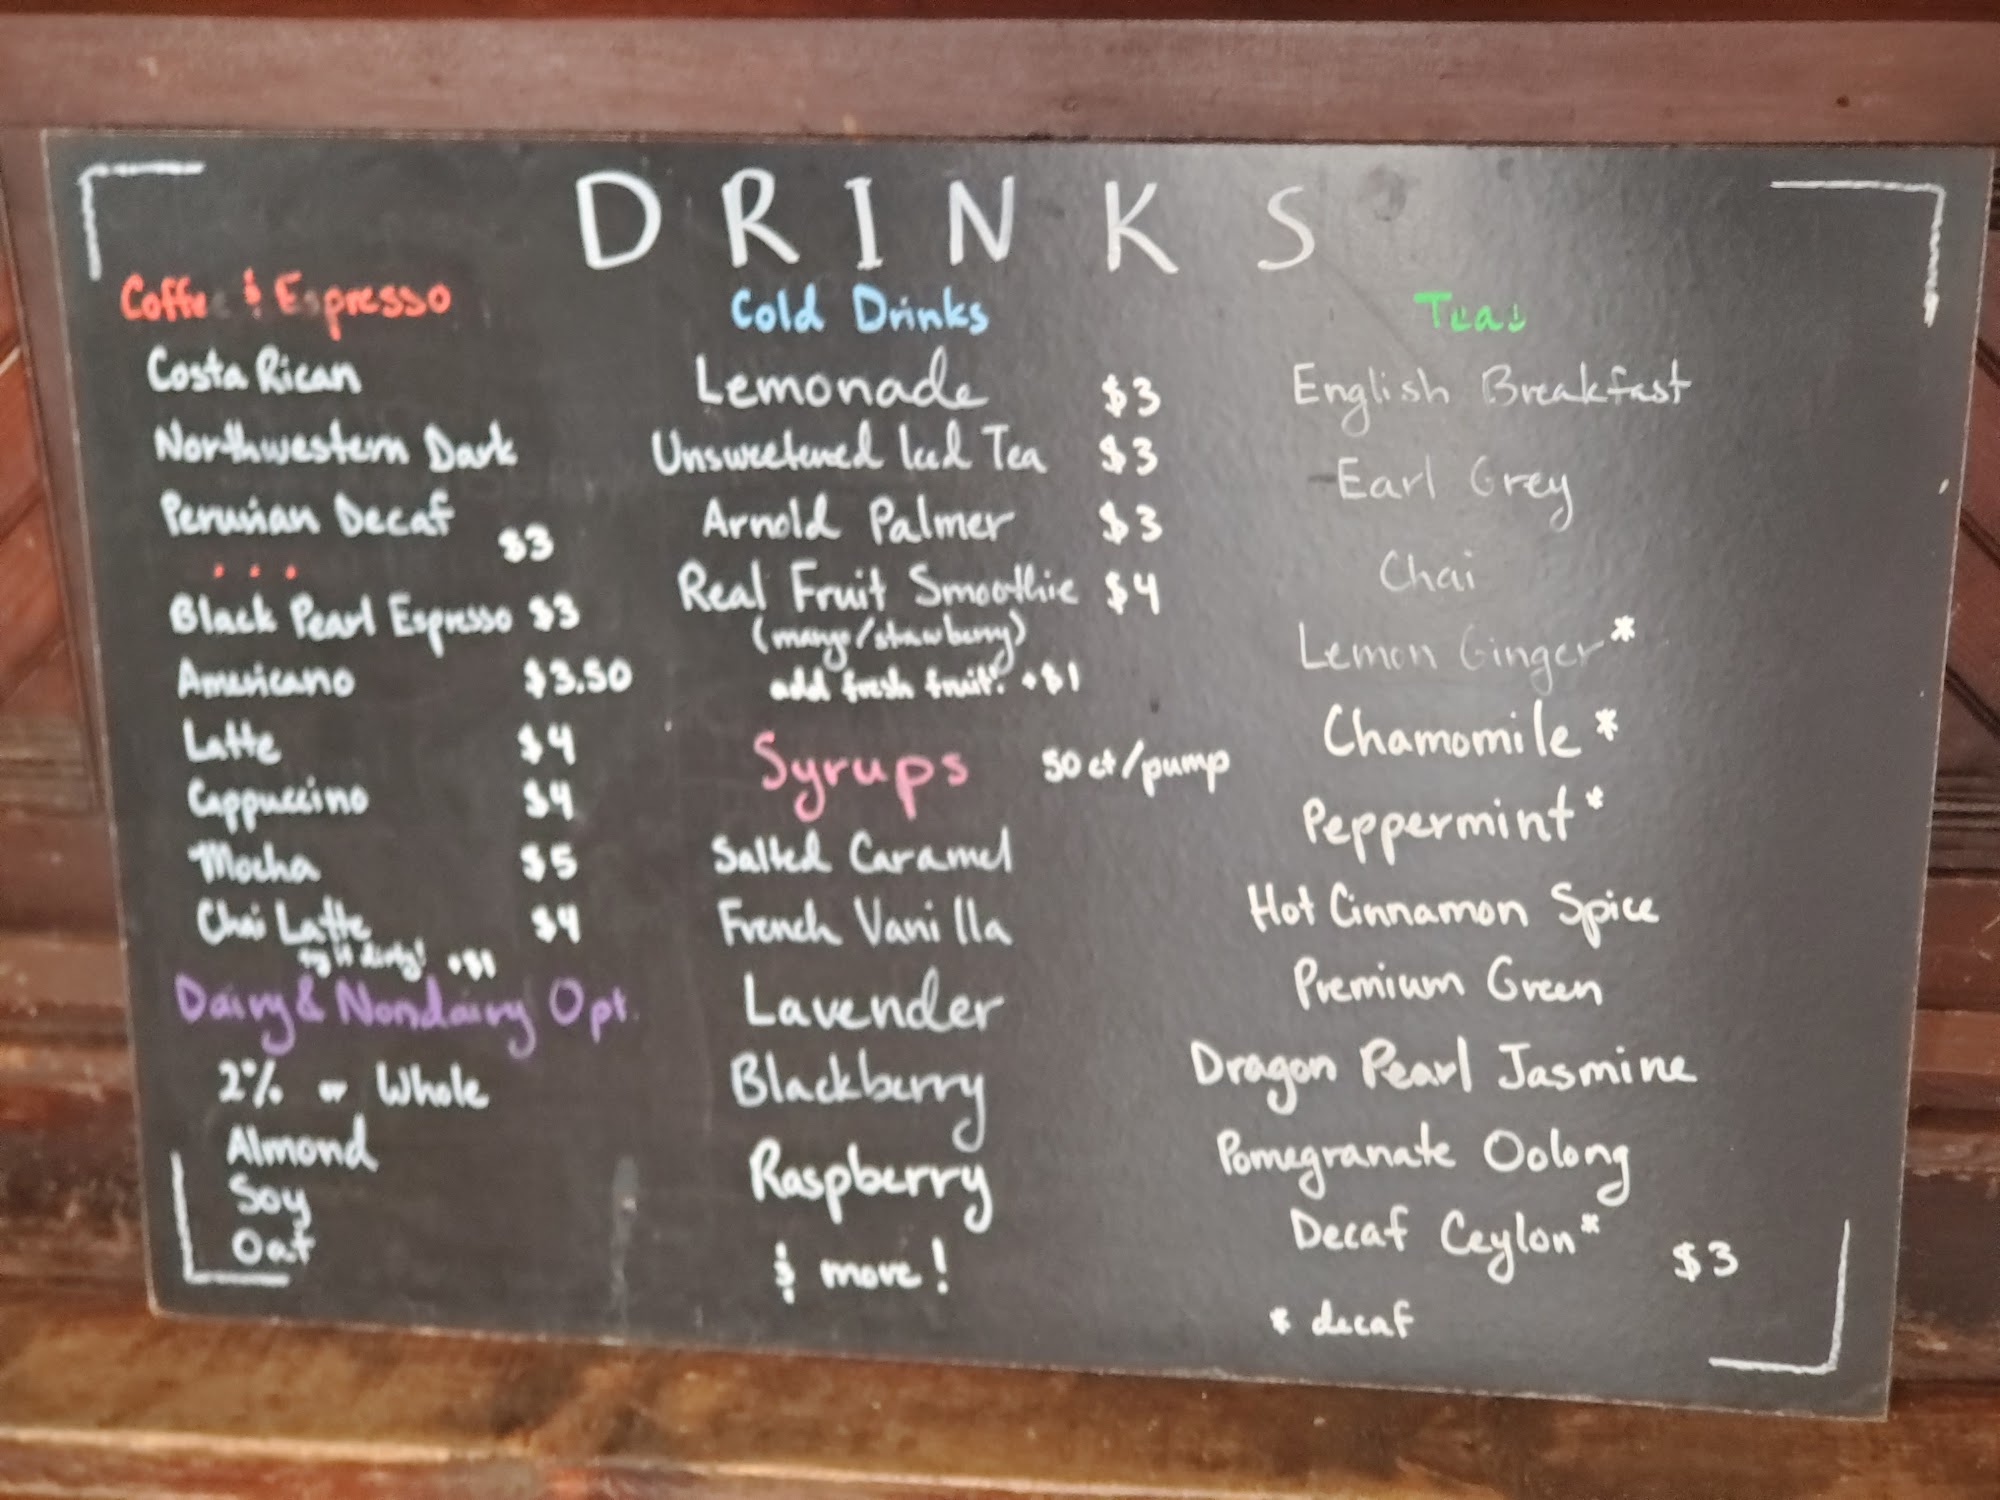 DRINKS
Coffee & Espresso
Costa Rican
Northwestern Dark
Peruvian Decaf
$3
Black Pearl Espresso $3
Americano $3.50
Latte $4
Cappuccino $4
Mocha $5
Chai Latte $4
try it dirty! +$1
Dairy & Nondairy Opt.
2% or Whole
Almond
Soy
Oat
Cold Drinks
Lemonade $3
Unsweetened Iced Tea $3
Arnold Palmer $3
Real Fruit Smoothie $4
(mango/strawberry)
add fresh fruit? +$1
Syrups 50 ct/pump
Salted Caramel
French Vanilla
Lavender
Blackberry
Raspberry
& more!
Teas
English Breakfast
Earl Grey
Chai
Lemon Ginger*
Chamomile*
Peppermint*
Hot Cinnamon Spice
Premium Green
Dragon Pearl Jasmine
Pomegranate Oolong
Decaf Ceylon*
$3
* decaf